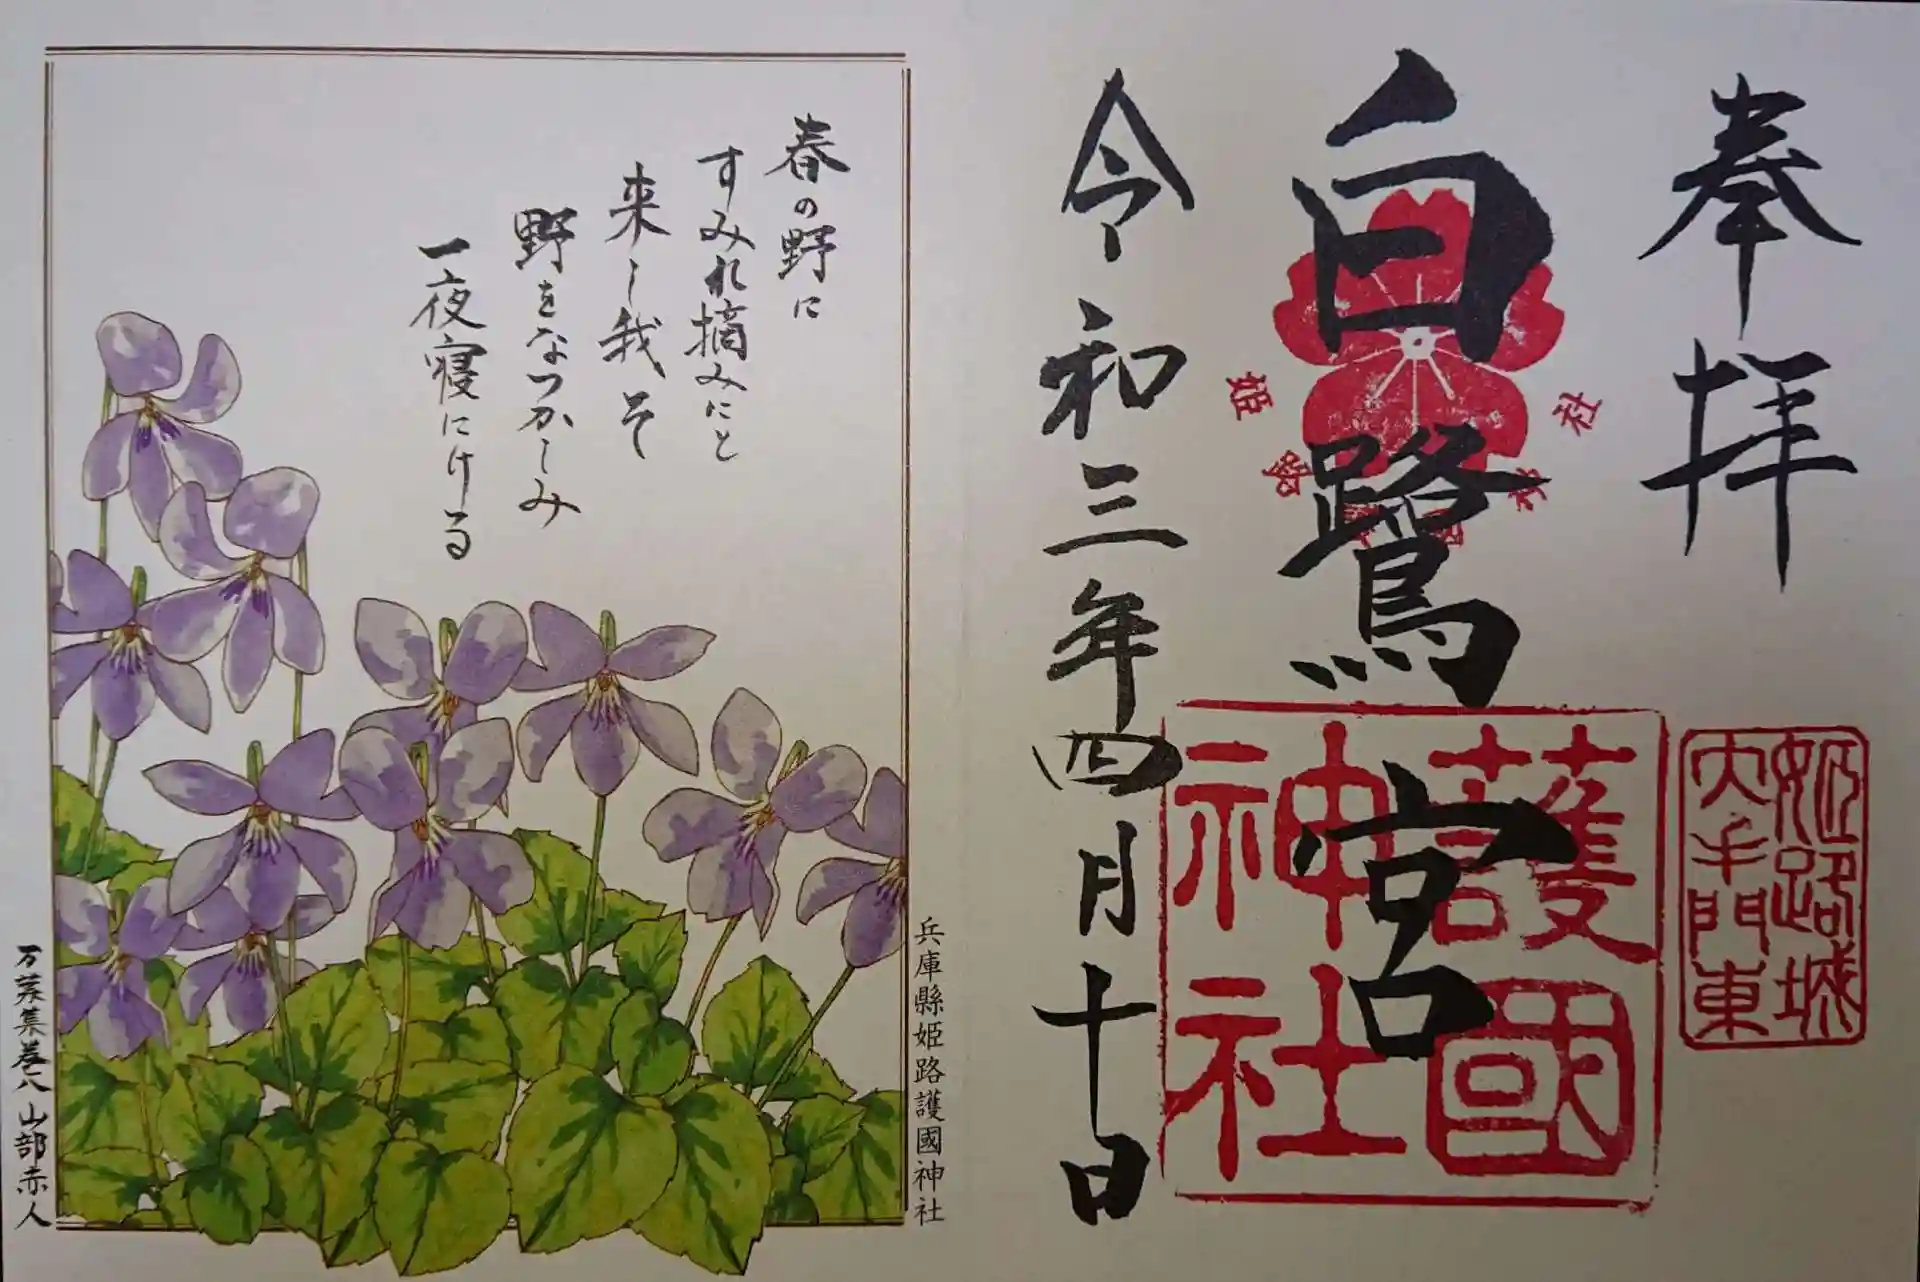 奉拝
姫路城
大手門東
白鷺宮
護國
神社
令和三年四月十日
兵庫縣姫路護國神社
春の野に
すみれ摘みにと
来し我そ
野をなつかしみ
一夜寝にける
万葉集巻八 山部赤人